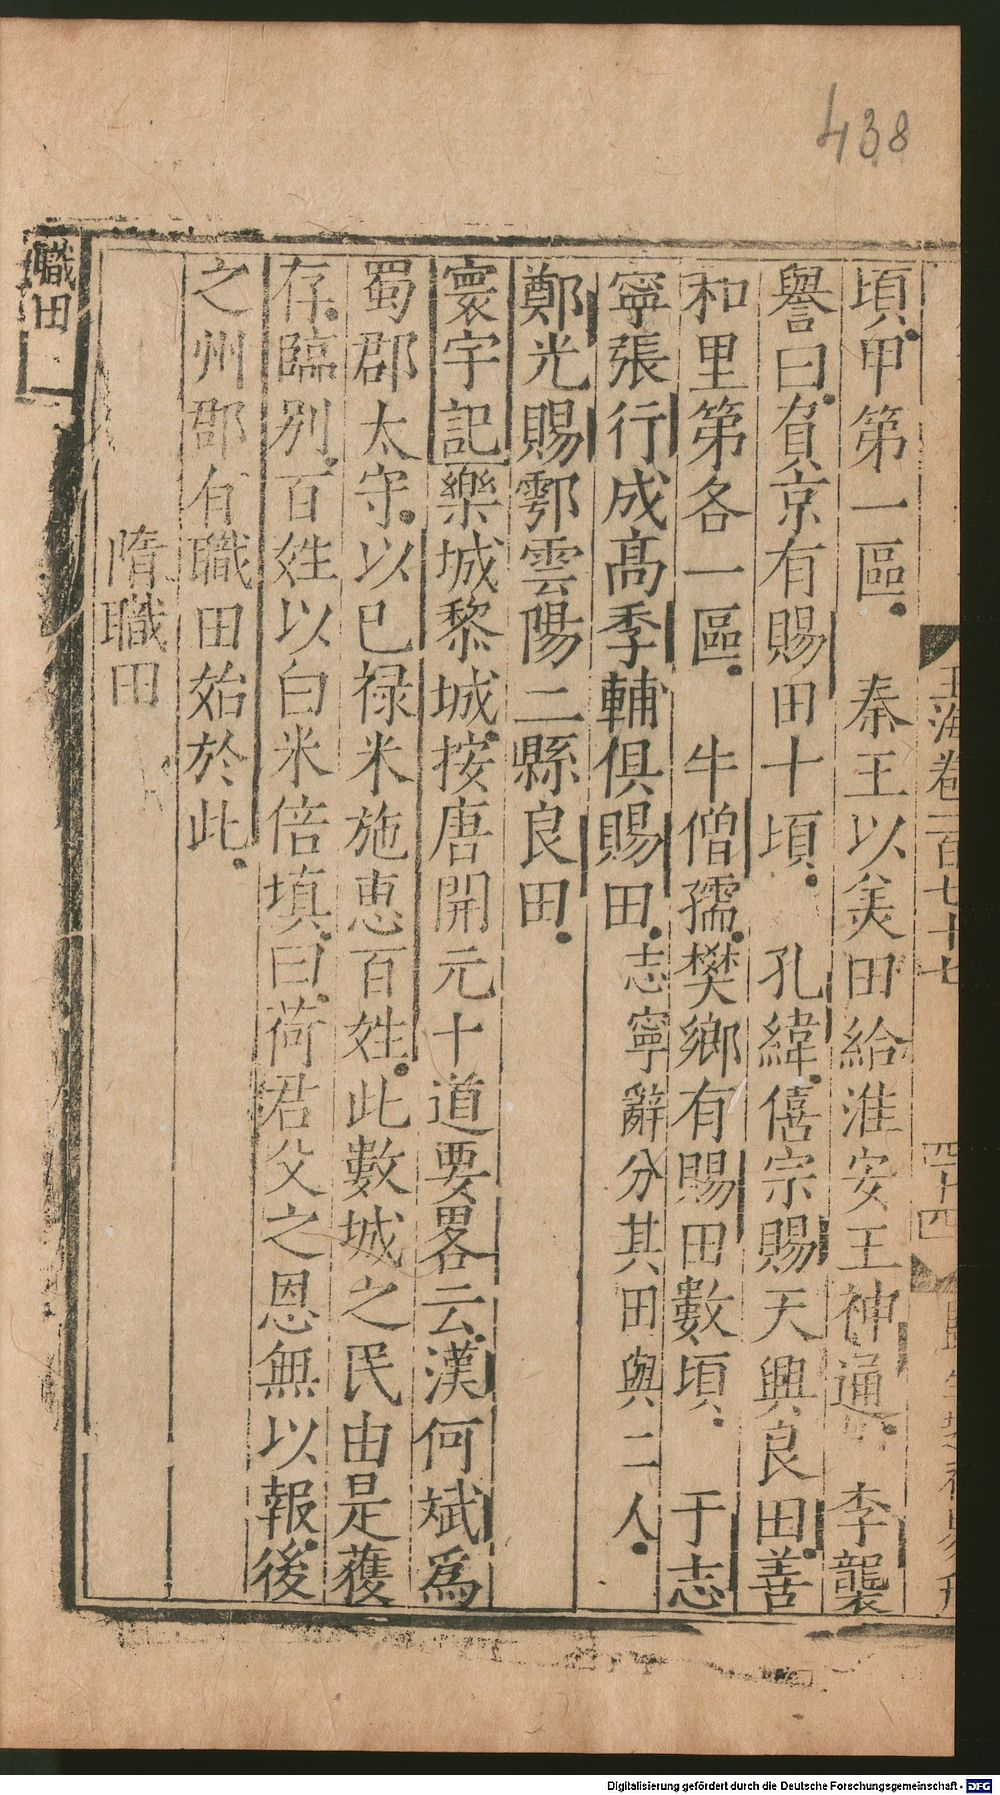 438
玉海卷一百七十七
四十四
頃甲第一區 秦王以美田給淮安王神通 李襲
譽曰負京有賜田十頃 孔緯僖宗賜天興良田善
和里第各一區 牛僧孺樊鄉有賜田數頃 于志
寧張行成高季輔俱賜田志寧辭分其田與二人
鄭光賜鄠雲陽二縣良田
寰宇記樂城黎城按唐開元十道要畧云漢何斌爲
蜀郡太守以已禄米施恵百姓此數城之民由是獲
存臨别百姓以白米倍填曰荷君父之恩無以報後
之州郡有職田始於此
隋職田
職田
Digitalisierung gefördert durch die Deutsche Forschungsgemeinschaft - DFG